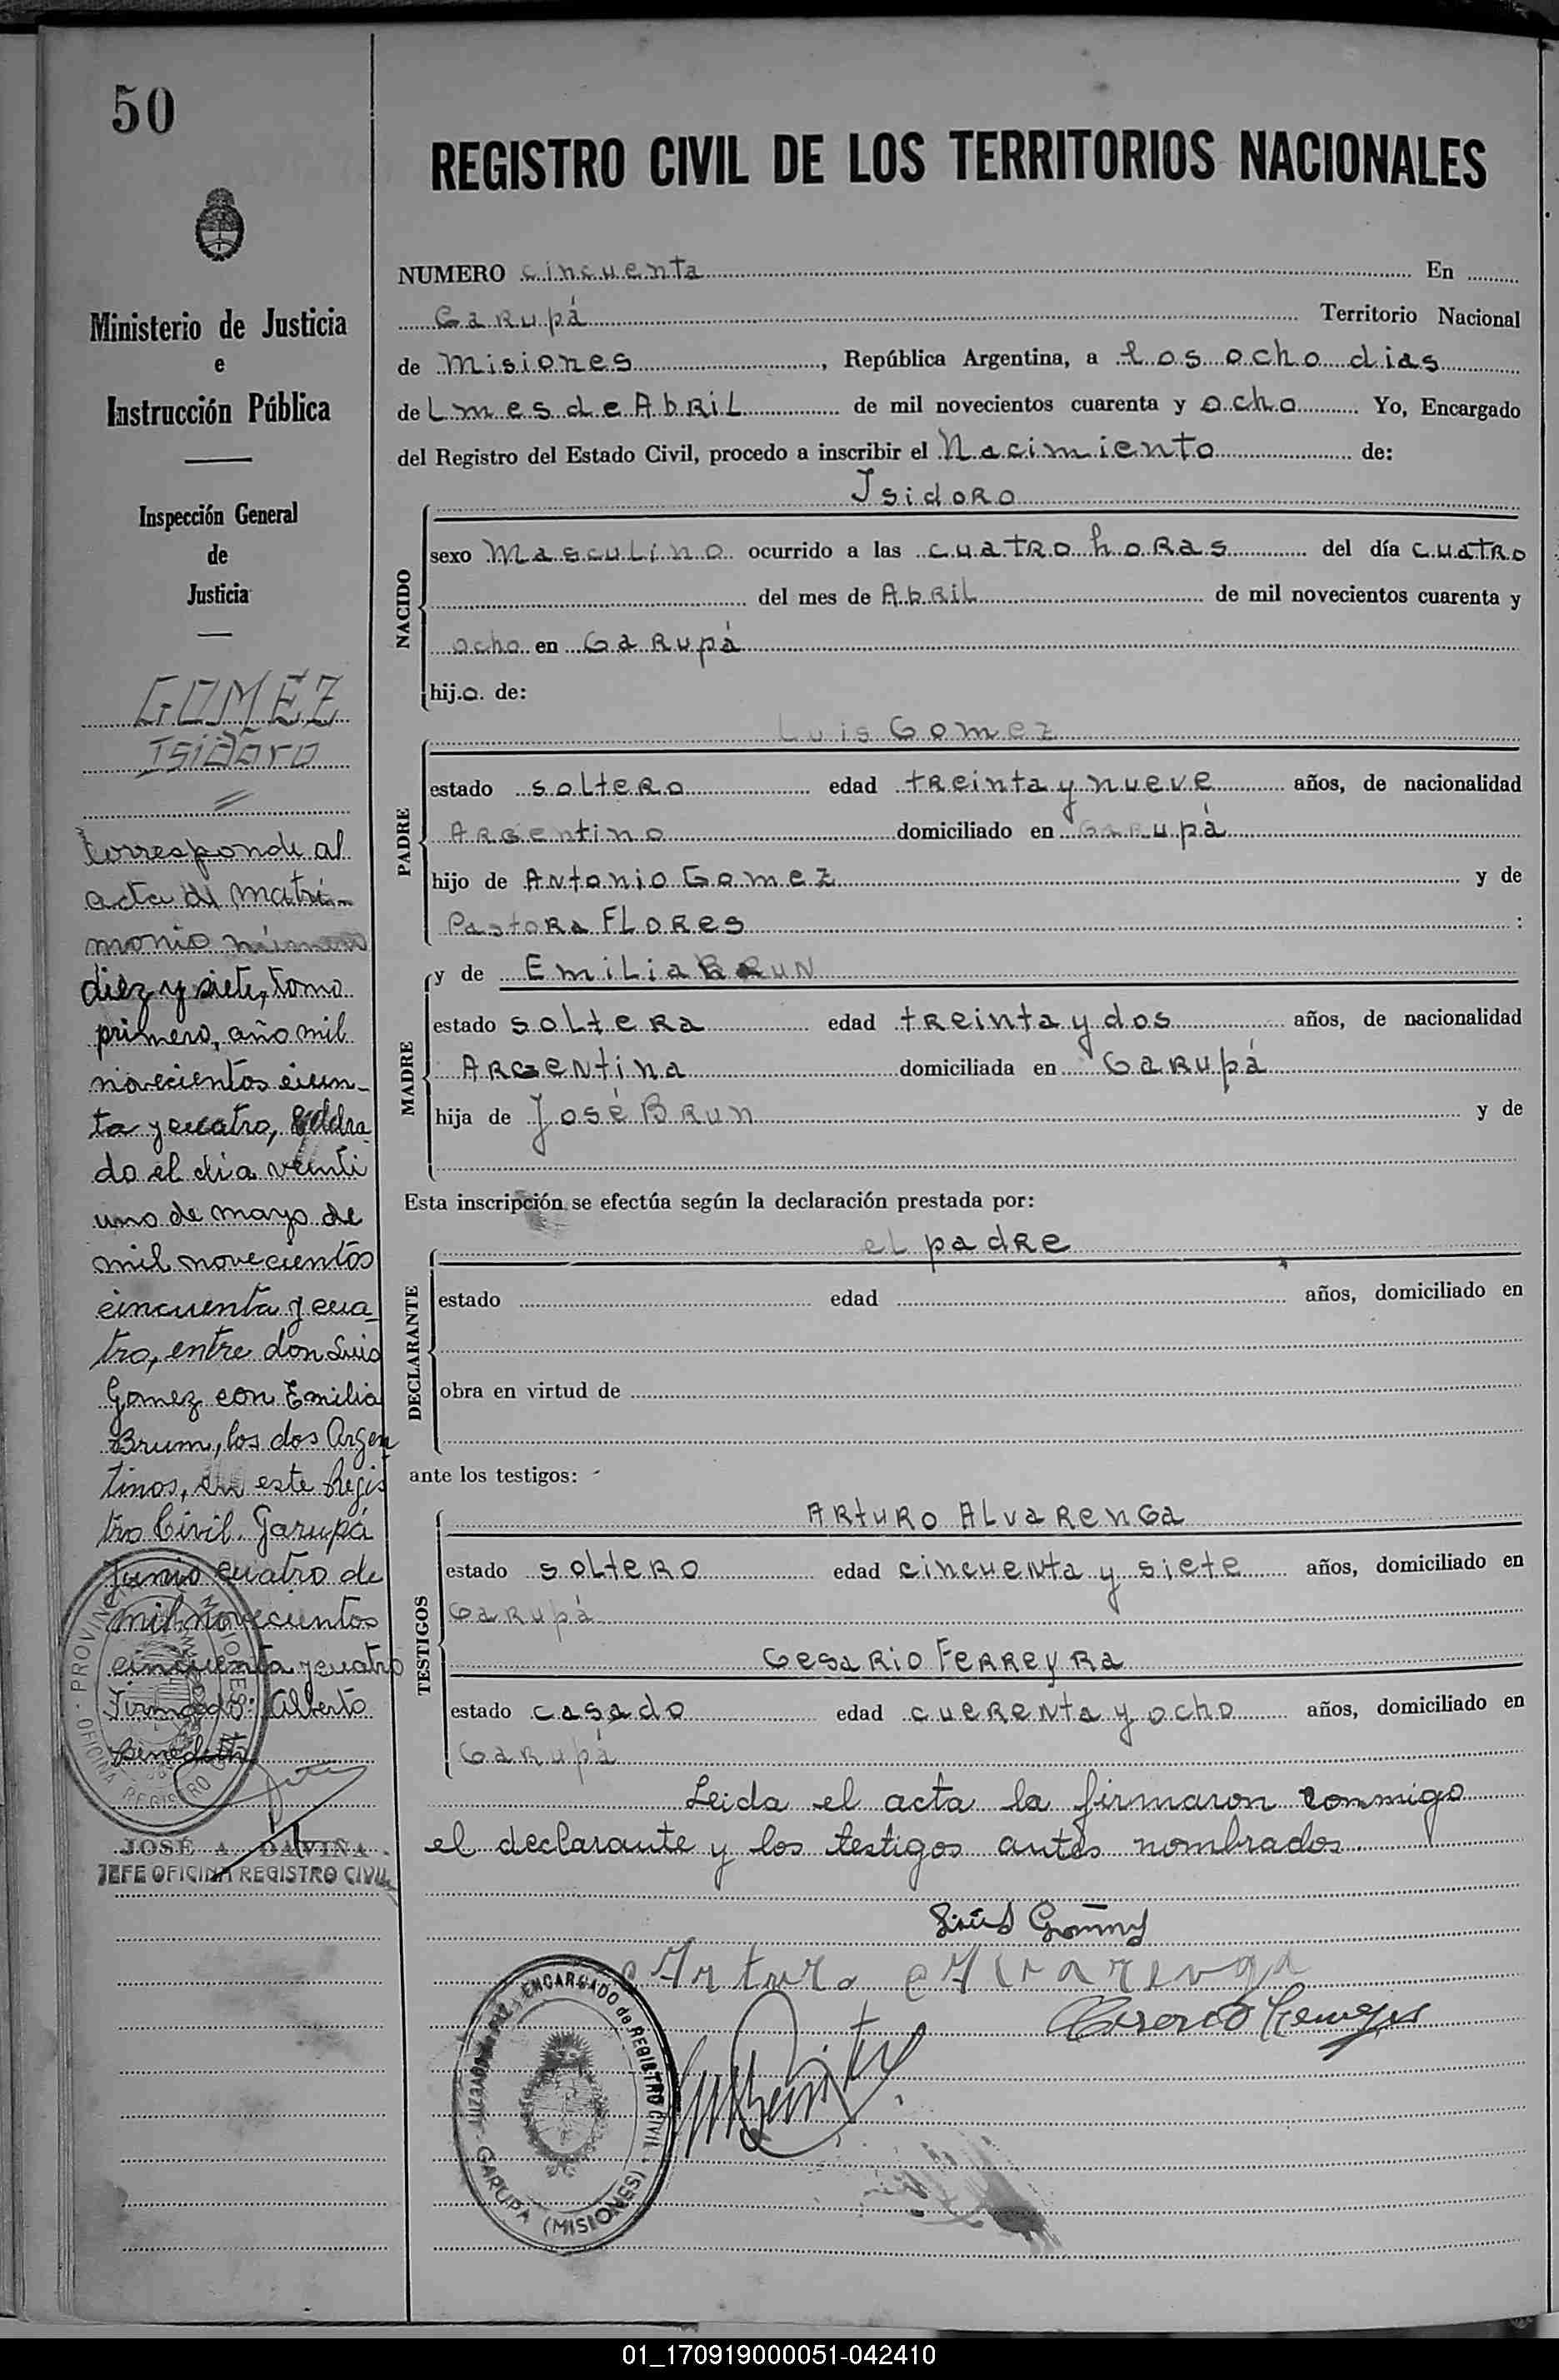 50
Ministerio de Justicia
e
Instrucción Pública
Inspección General
de
Justicia
GOMEZ
Isidoro
Corresponde al
acta de matri-
monio número
diez y siete, tomo
primero, año mil
novecientos cicun-
ta y cuatro,
do el día veinti
uno de mayo de
mil novecientos
cincuenta y cua-
tro, entre don Luis
Gomez con Emilia
Brum, los dos Argen
tinos, en este Regis
tro Civil. Garupá
Junio cuatro de
mil novecientos
cincuenta y cuatro
Firmado: Alberto
Benedetti
JOSÉ A. DAVIÑA
JEFE OFICINA REGISTRO CIVIL
REGISTRO CIVIL DE LOS TERRITORIOS NACIONALES
NUMERO cincuenta En
Garupá Territorio Nacional
de Misiones, República Argentina, a los ocho dias
del mes de Abril de mil novecientos cuarenta y ocho Yo, Encargado
del Registro del Estado Civil, procedo a inscribir el Nacimiento de:
Isidoro
NACIDO
sexo Masculino ocurrido a las cuatro horas del día cuatro
del mes de Abril de mil novecientos cuarenta y
ocho en Garupá
hijo de:
Luis Gomez
PADRE
estado soltero edad treinta y nueve años, de nacionalidad
Argentino domiciliado en Garupá
hijo de Antonio Gomez y de
Pastora Flores :
y de Emilia Brun
MADRE
estado soltera edad treinta y dos años, de nacionalidad
Argentina domiciliada en Garupá
hija de José Brun y de
Esta inscripción se efectúa según la declaración prestada por:
el padre
DECLARANTE
estado edad años, domiciliado en
obra en virtud de
ante los testigos:
Arturo Alvarenga
TESTIGOS
estado soltero edad cincuenta y siete años, domiciliado en
Garupá
Cesario Ferreyra
estado casado edad cuerenta y ocho años, domiciliado en
Garupá
Leida el acta la firmaron conmigo
el declarante y los testigos antes nombrados.
Luis Gomez
Arturo Alvarenga
ENCARGADO de REGISTRO CIVIL
GARUPA (MISIONES)
01_170919000051-042410